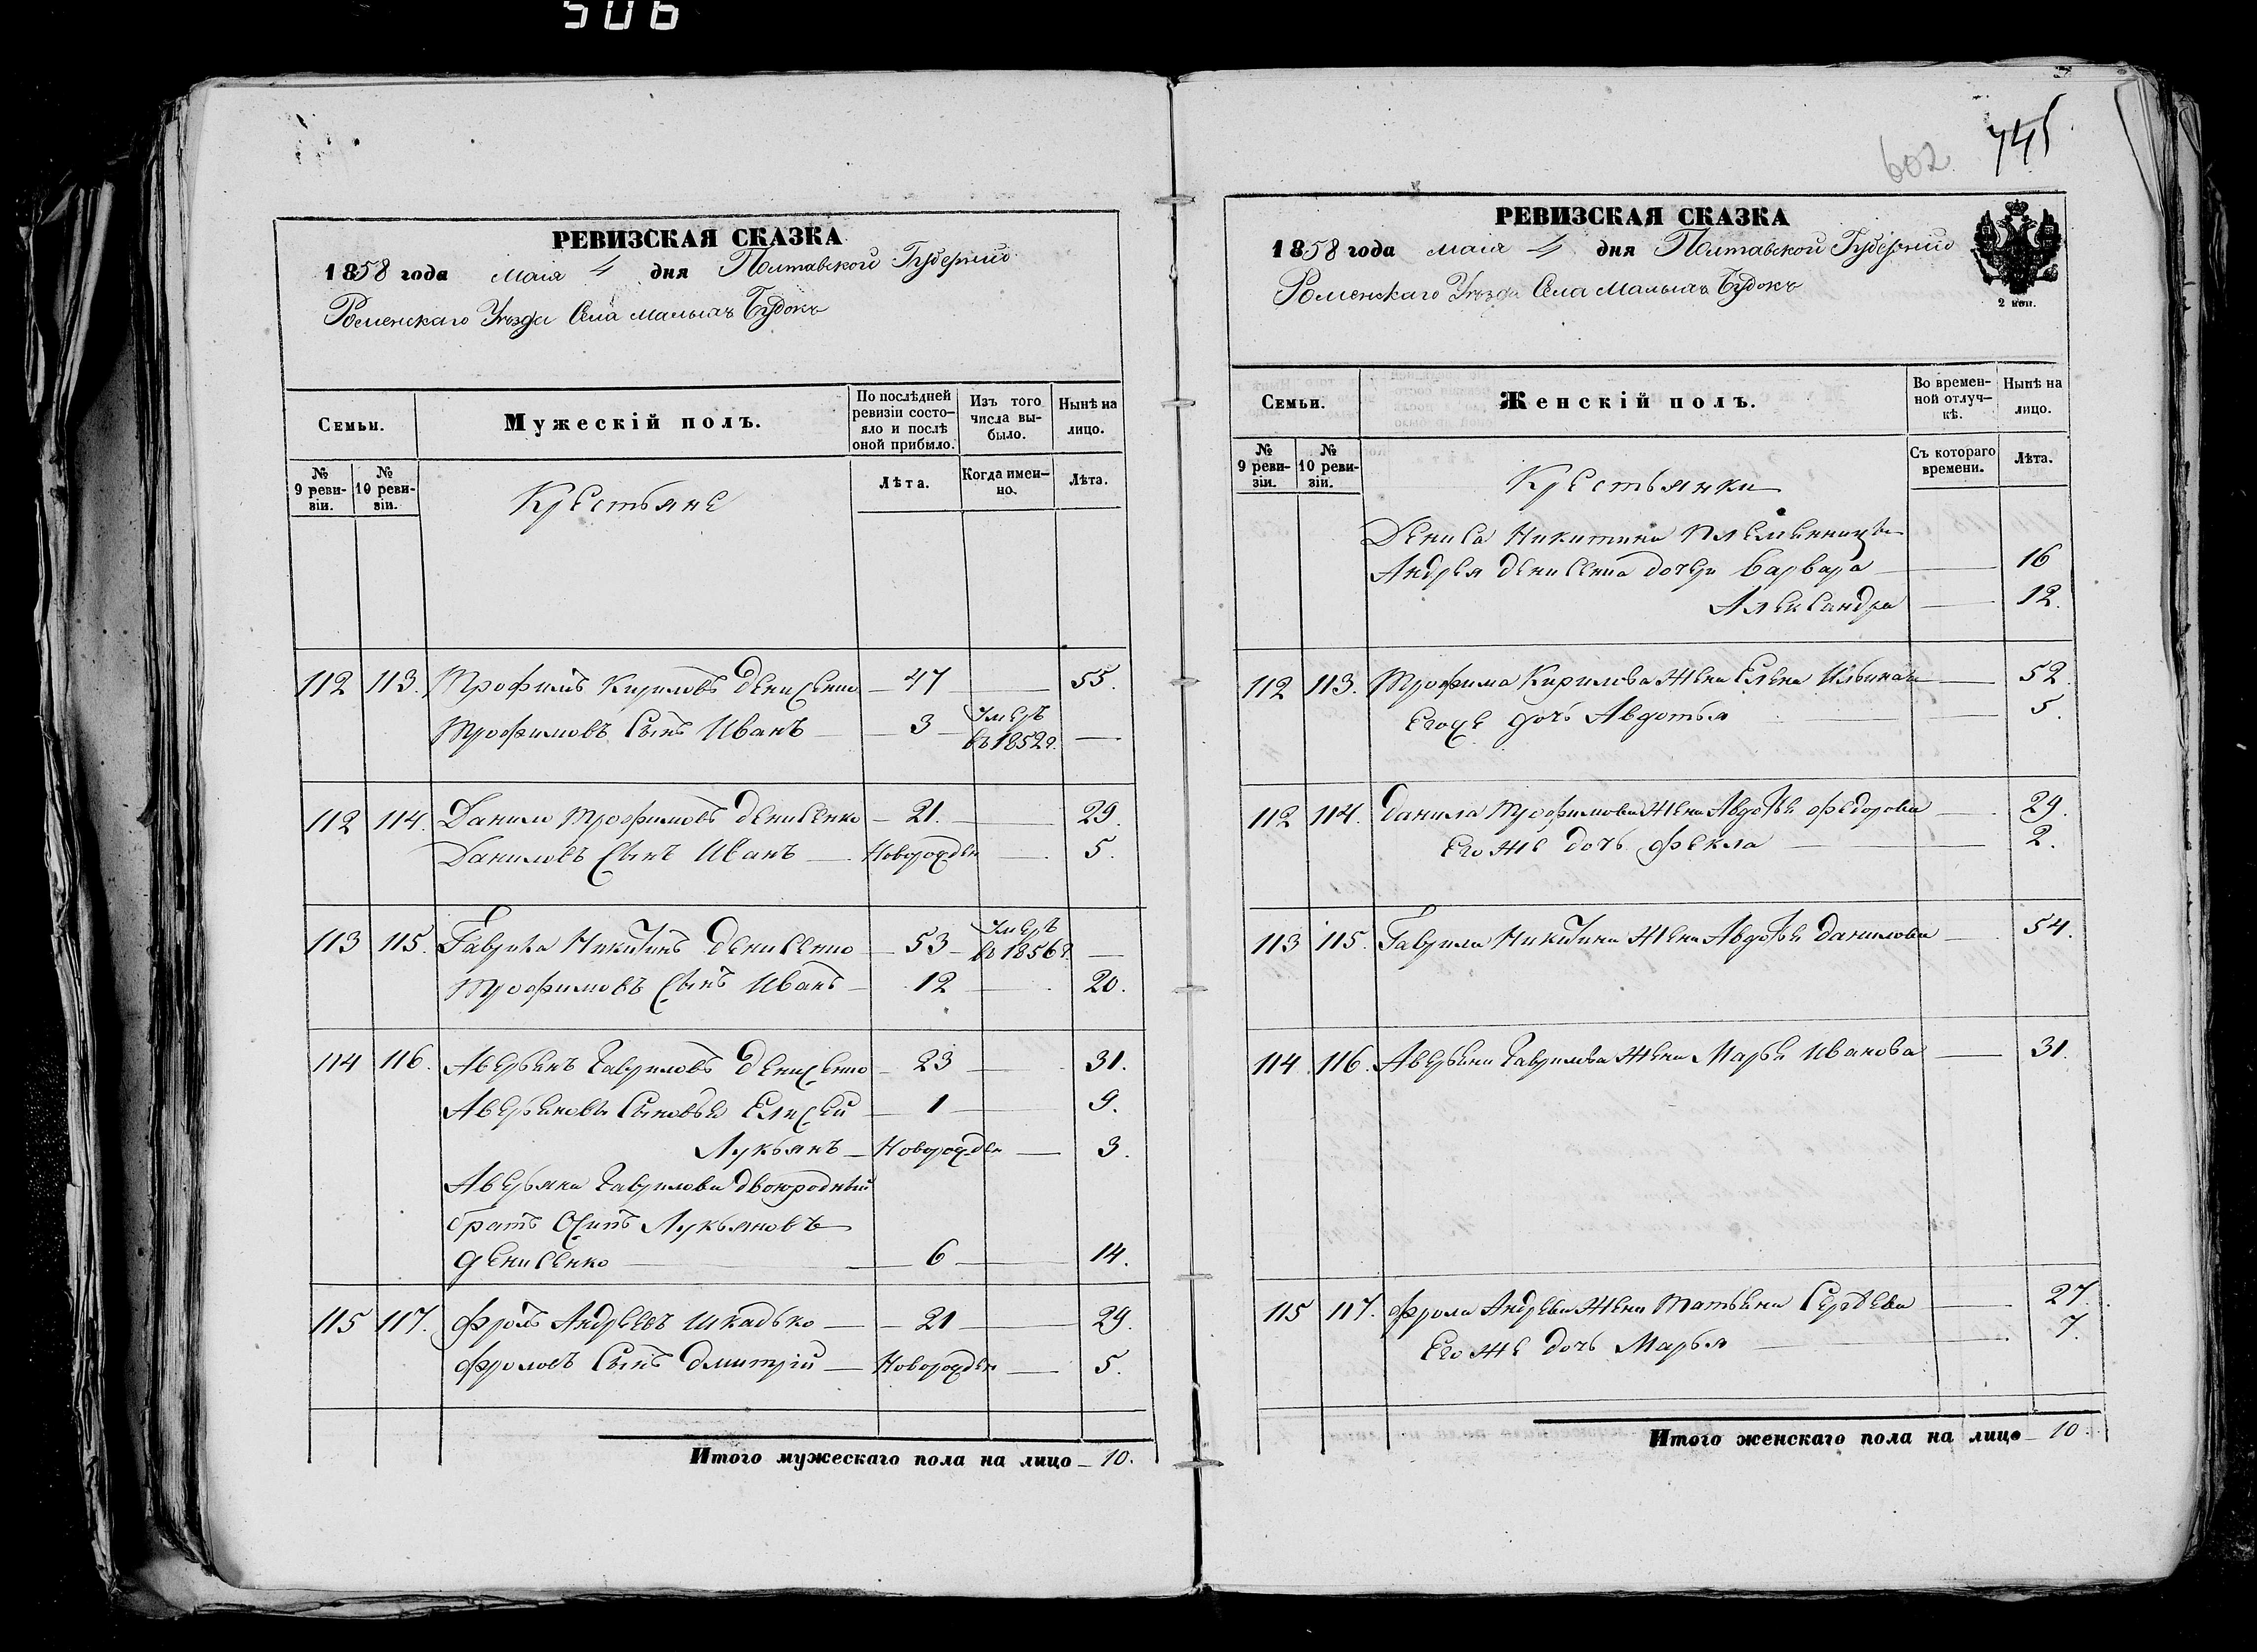 506
РЕВИЗСКАЯ СКАЗКА
1858 года маія 4 дня Полтавской Губерніи
Роменскаго Уезда Села Малыхъ Будокъ
Семьи.
Мужескій полъ.
По послѣдней ревизіи состо-
яло и послѣ
оной прибыло.
Изъ того
числа вы-
было.
Нынѣ на
лицо.
№
9 реви-
зіи.
№
10 реви-
зіи.
Крестьяне
Лѣта.
Когда имен-
но.
Лѣта.
112 113. Трофимъ Кириловъ Денисенко — 47 — 55.
Трофимовъ Сынъ Иванъ — 3 — Умеръ въ 1852г. —
112 114. Данило Трофимовъ Денисенко — 21. — 29.
Даниловъ Сынъ Иванъ — Новорожден — 5.
113 115. Гаврила Никитинъ Денисенко — 53 — Умеръ въ 1856г. —
Трофимовъ Сынъ Иванъ — 12 — 20.
114 116. Аверьянъ Гавриловъ Денисенко — 23 — 31.
Аверьяновы Сыновья Елисей — 1 — 9.
Лукьянъ — Новорожден — 3.
Аверьяна Гаврилова двоюродный
братъ Осипъ Лукьяновъ
Денисенко — 6 — 14.
115 117. Фролъ Андреевъ Шкадько — 21 — 29.
Фроловъ Сынъ Дмитрій — Новорожден — 5.
Итого мужескаго пола на лицо — 10.
602 745
РЕВИЗСКАЯ СКАЗКА
1858 года маія 4 дня Полтавской Губерніи
Роменскаго Уезда Села Малыхъ Будокъ
2 коп.
Семьи.
Женскій полъ.
Во времен-
ной отлуч-
кѣ.
Нынѣ на
лицо.
№
9 реви-
зіи.
№
10 реви-
зіи.
Крестьянки
Съ котораго
времени.
Лѣта.
Дениса Никитина племянника
Андрея Денисенка дочери Варвара — 16
Александра — 12.
112 113. Трофима Кирилова жена Елена Ильина — 52
Егоже дочь Авдотья — 5.
112 114. Данила Трофимова жена Авдотья Федорова — 29.
Его же дочь Фекла — 2.
113 115. Гаврила Никитина жена Авдотья Данилова — 54.
114. 116. Аверьяна Гаврилова жена Марья Иванова — 31.
115 117. Фрола Андреева жена Татьяна Сергеева — 27.
Его же дочь Марья — 7.
Итого женскаго пола на лицо — 10.